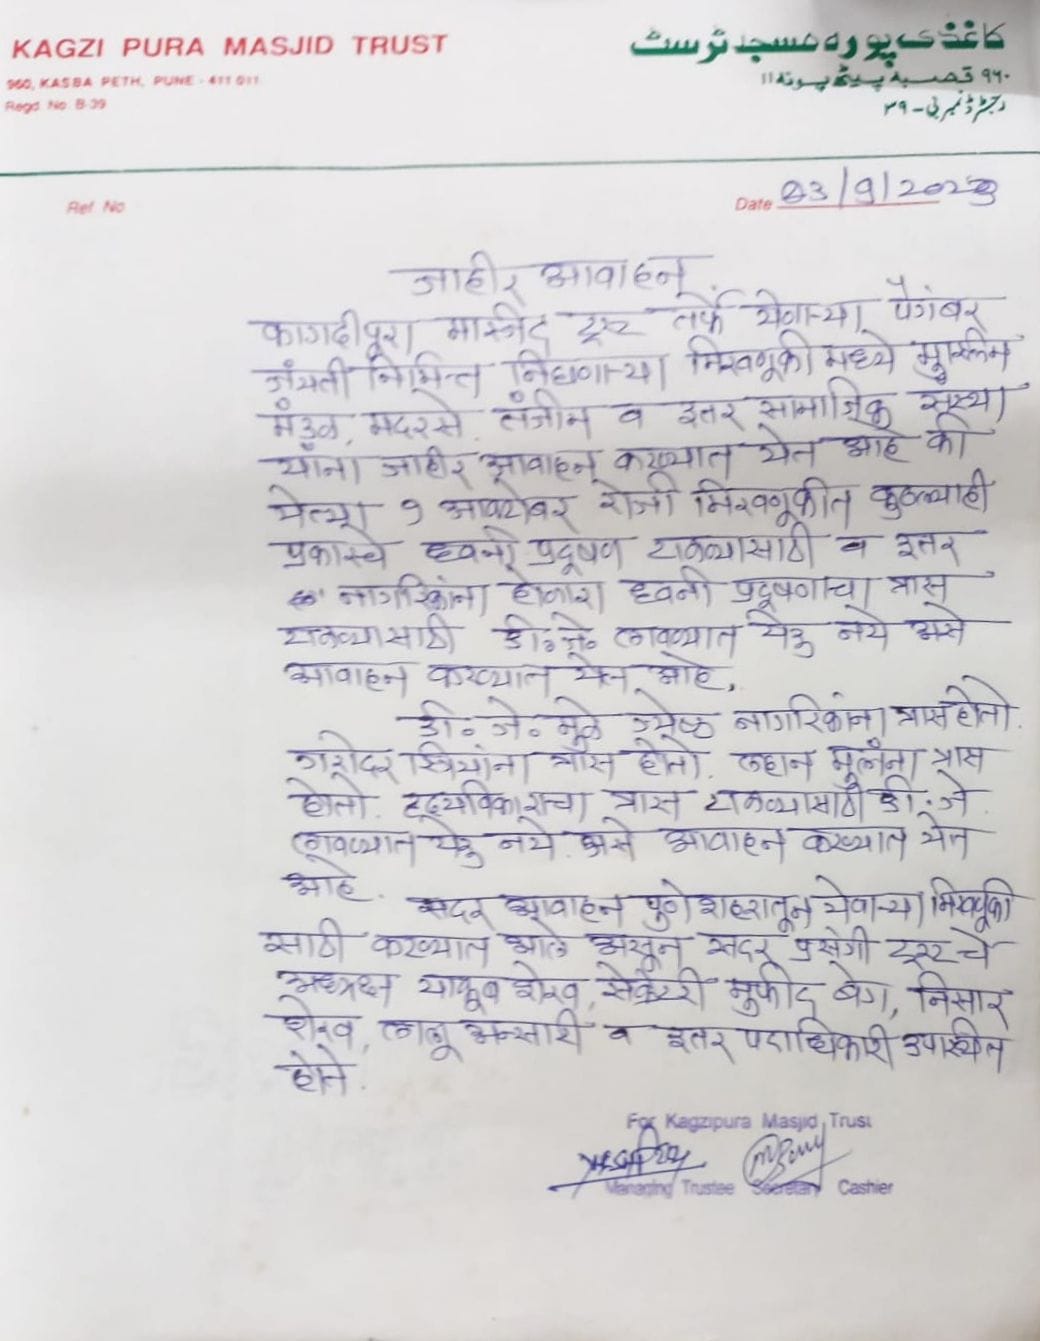 KAGZI PURA MASJID TRUST
960, KASBA PETH, PUNE - 411 011
Regd No. B-39
کاغذی پورہ مسجد ٹرسٹ
۹۶۰ قصبہ پیٹھ پونہ ۱۱
رجسٹرڈ نمبر بی - ۳۹
Ref No
Date 03/9/2023
जाहीर आवाहन
कागदीपुरा मास्जीद ट्रस्ट तर्फे येणाऱ्या पैगंबर
जंयती निमित्त निघणाऱ्या मिरवणूकी मध्ये मुस्लिम
मंडळ, मदरसे, तंजीम व इतर सामाजिक संस्था
यांना जाहीर आवाहन करण्यात येत आहे की
येत्या १ आक्टोबर रोजी मिरवणूकीत कुठल्याही
प्रकारचे ध्वनी प्रदूषण टाळण्यासाठी व इतर
नागरिकांना होणारा ध्वनी प्रदूषणाचा त्रास
टाळण्यासाठी डी.जे. लावण्यात येऊ नये असे
आवाहन करण्यात येत आहे.
डी. जे. मुळे ज्येष्ठ नागरिकांना त्रास होतो.
गरोदर स्त्रियांना त्रास होतो. लहान मुलांना त्रास
होतो. हृदयविकाराचा त्रास टाळण्यासाठी डी. जे.
लावण्यात येऊ नये. असे आवाहन करण्यात येत
आहे.
सदर आवाहन पुणे शहरातून येणाऱ्या मिरवणूकी
साठी करण्यात आले असून सदर प्रसंगी ट्रस्टचे
अध्यक्ष याकूब शेख, सेक्रेटरी मुफीद बेग, निसार
शेख, लालू अन्सारी व इतर पदाधिकारी उपस्थीत
होते.
For Kagzipura Masjid Trust
Managing Trustee Secretary Cashier